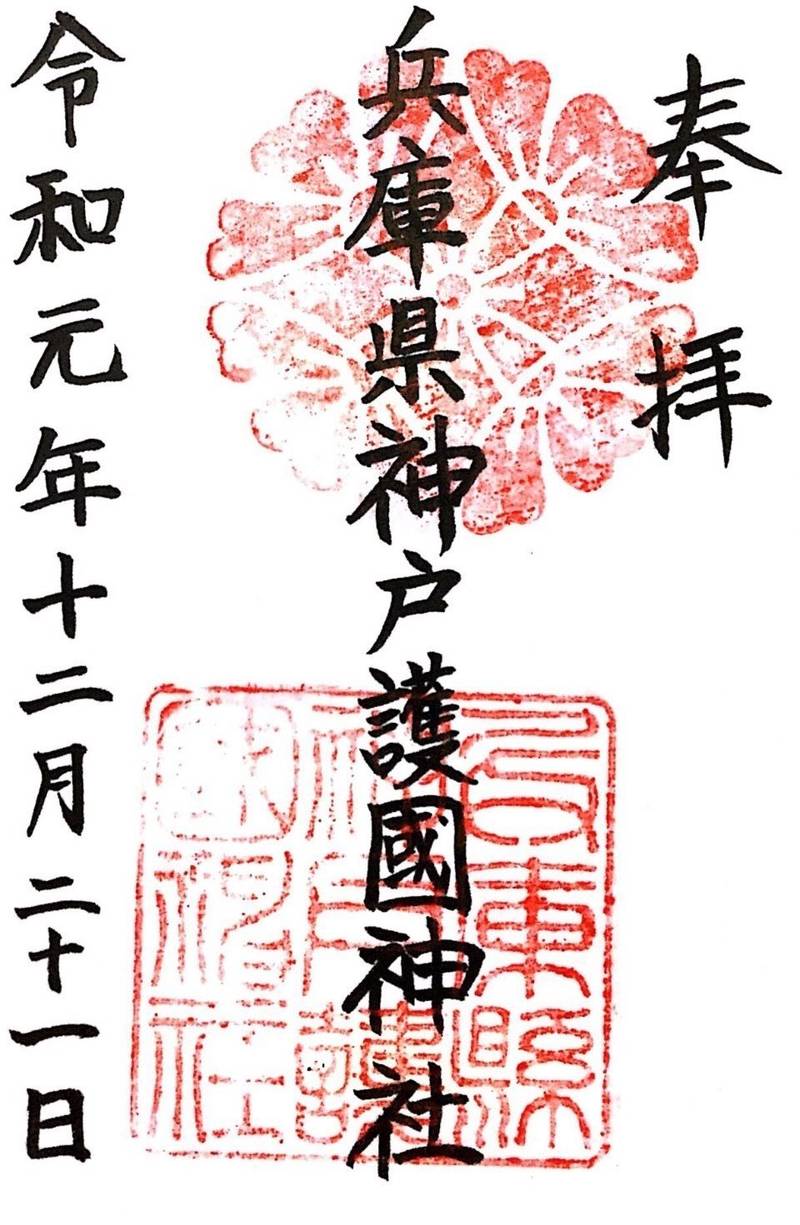 奉拝
兵庫県神戸護國神社
兵庫縣
神戸護
國神社
令和元年十二月二十一日